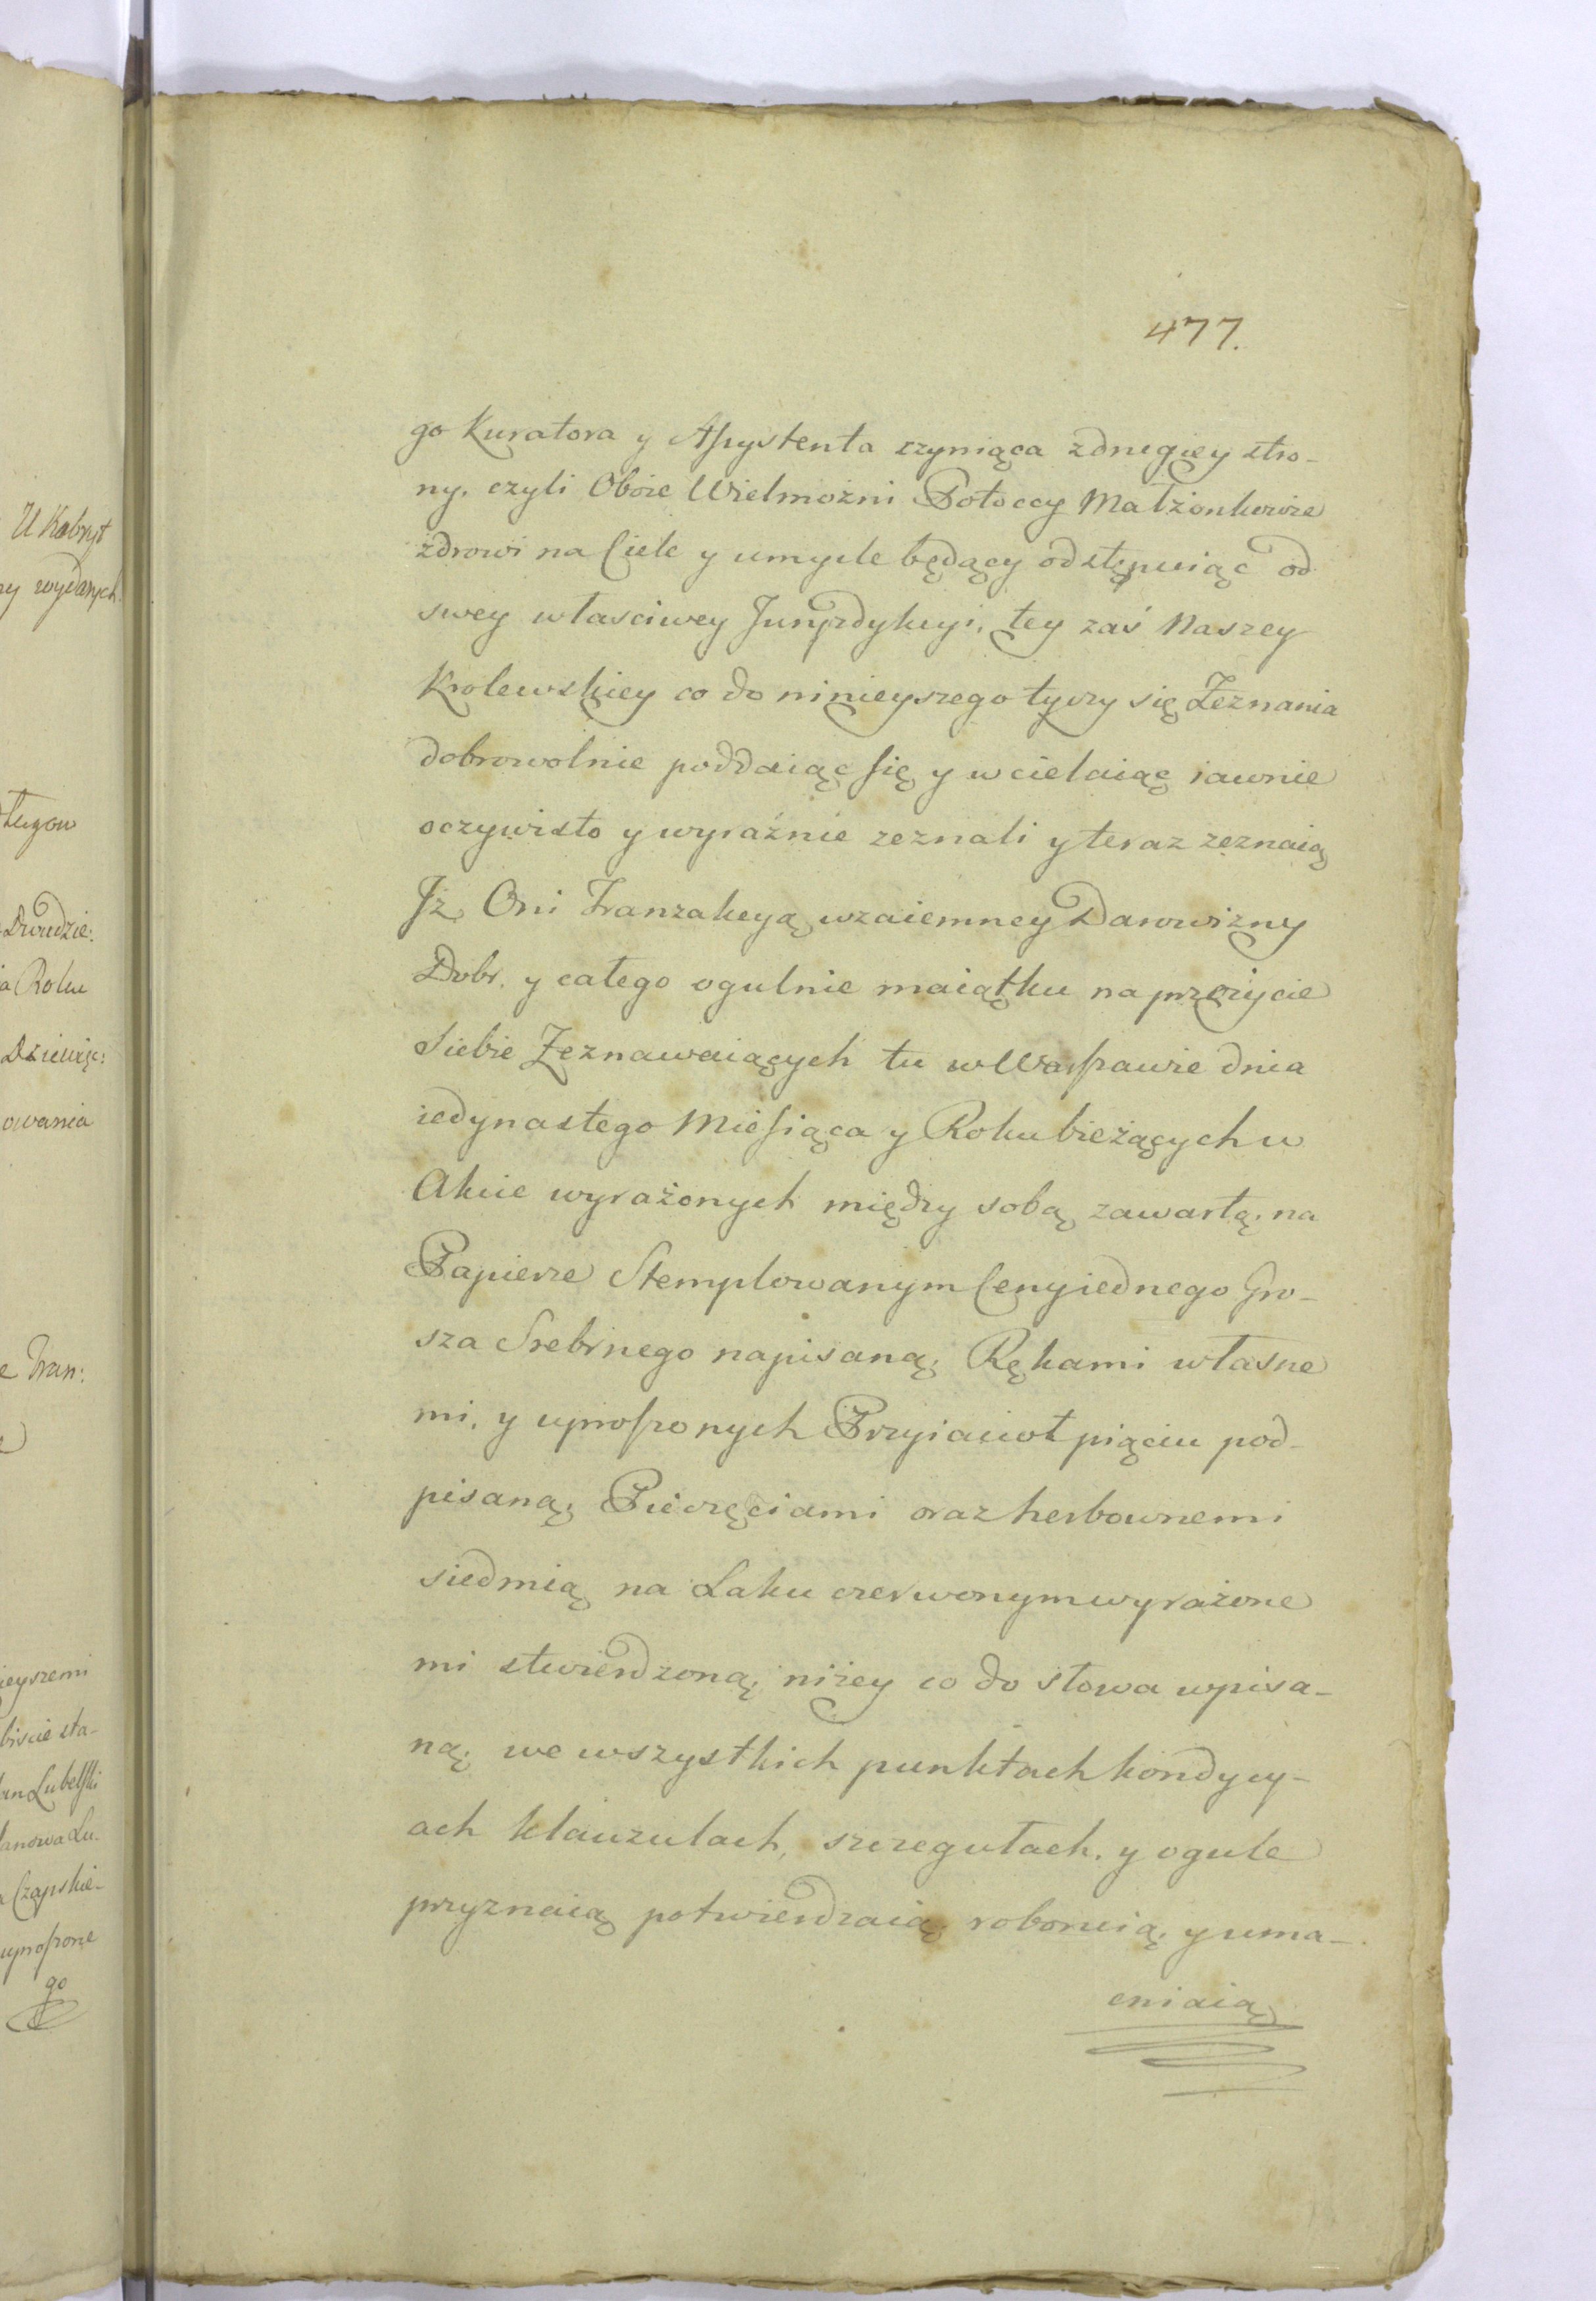 477.
go Kuratora y Assystenta czyniąca z drugiey stro-
ny, czyli Oboie Wielmożni Potoccy Małżonkowie
zdrowi na Ciele y umyśle będący odstępuiąc od
swey własciwey Juryzdykcyi, tey zaś Naszey
Krolewskiey co do ninieyszego tyczy się Zeznania
dobrowolnie poddaiąc się y wcielaiąc iawnie
oczywisto y wyraźnie zeznali y teraz zeznaią
Jż Oni Tranzakcyą wzaiemney Darowizny
Dobr. y całego ogulnie maiątku na przeżycie
siebie Zeznawaiących tu w Warszawie dnia
iedynastego Miesiąca y Roku bieżących w
Akcie wyrażonych między sobą zawartą, na
Papierze Stemplowanym Ceny iednego Gro-
sza Srebrnego napisaną, Rękami własne
mi, y uproszonych Przyiacioł pięciu pod-
pisaną, Pieczęciami oraz herbownemi
siedmią na Laku czerwonym wyrażone
mi stwierdzoną, niżey co do słowa wpisa-
ną, we wszystkich punktach kondycy-
ach klauzulach, szczegułach, y ogule
przyznaią potwierdzaią roboruią, y uma-
cniaią
U Kobryt
ry wydanych
ługow
Dwudzie:
ia Roku
Dziewięc:
owania
e Tran:
ieyszemi
biscie sta-
lan Lubelski
lanowa Lu-
a Czapskie-
uproszone
go